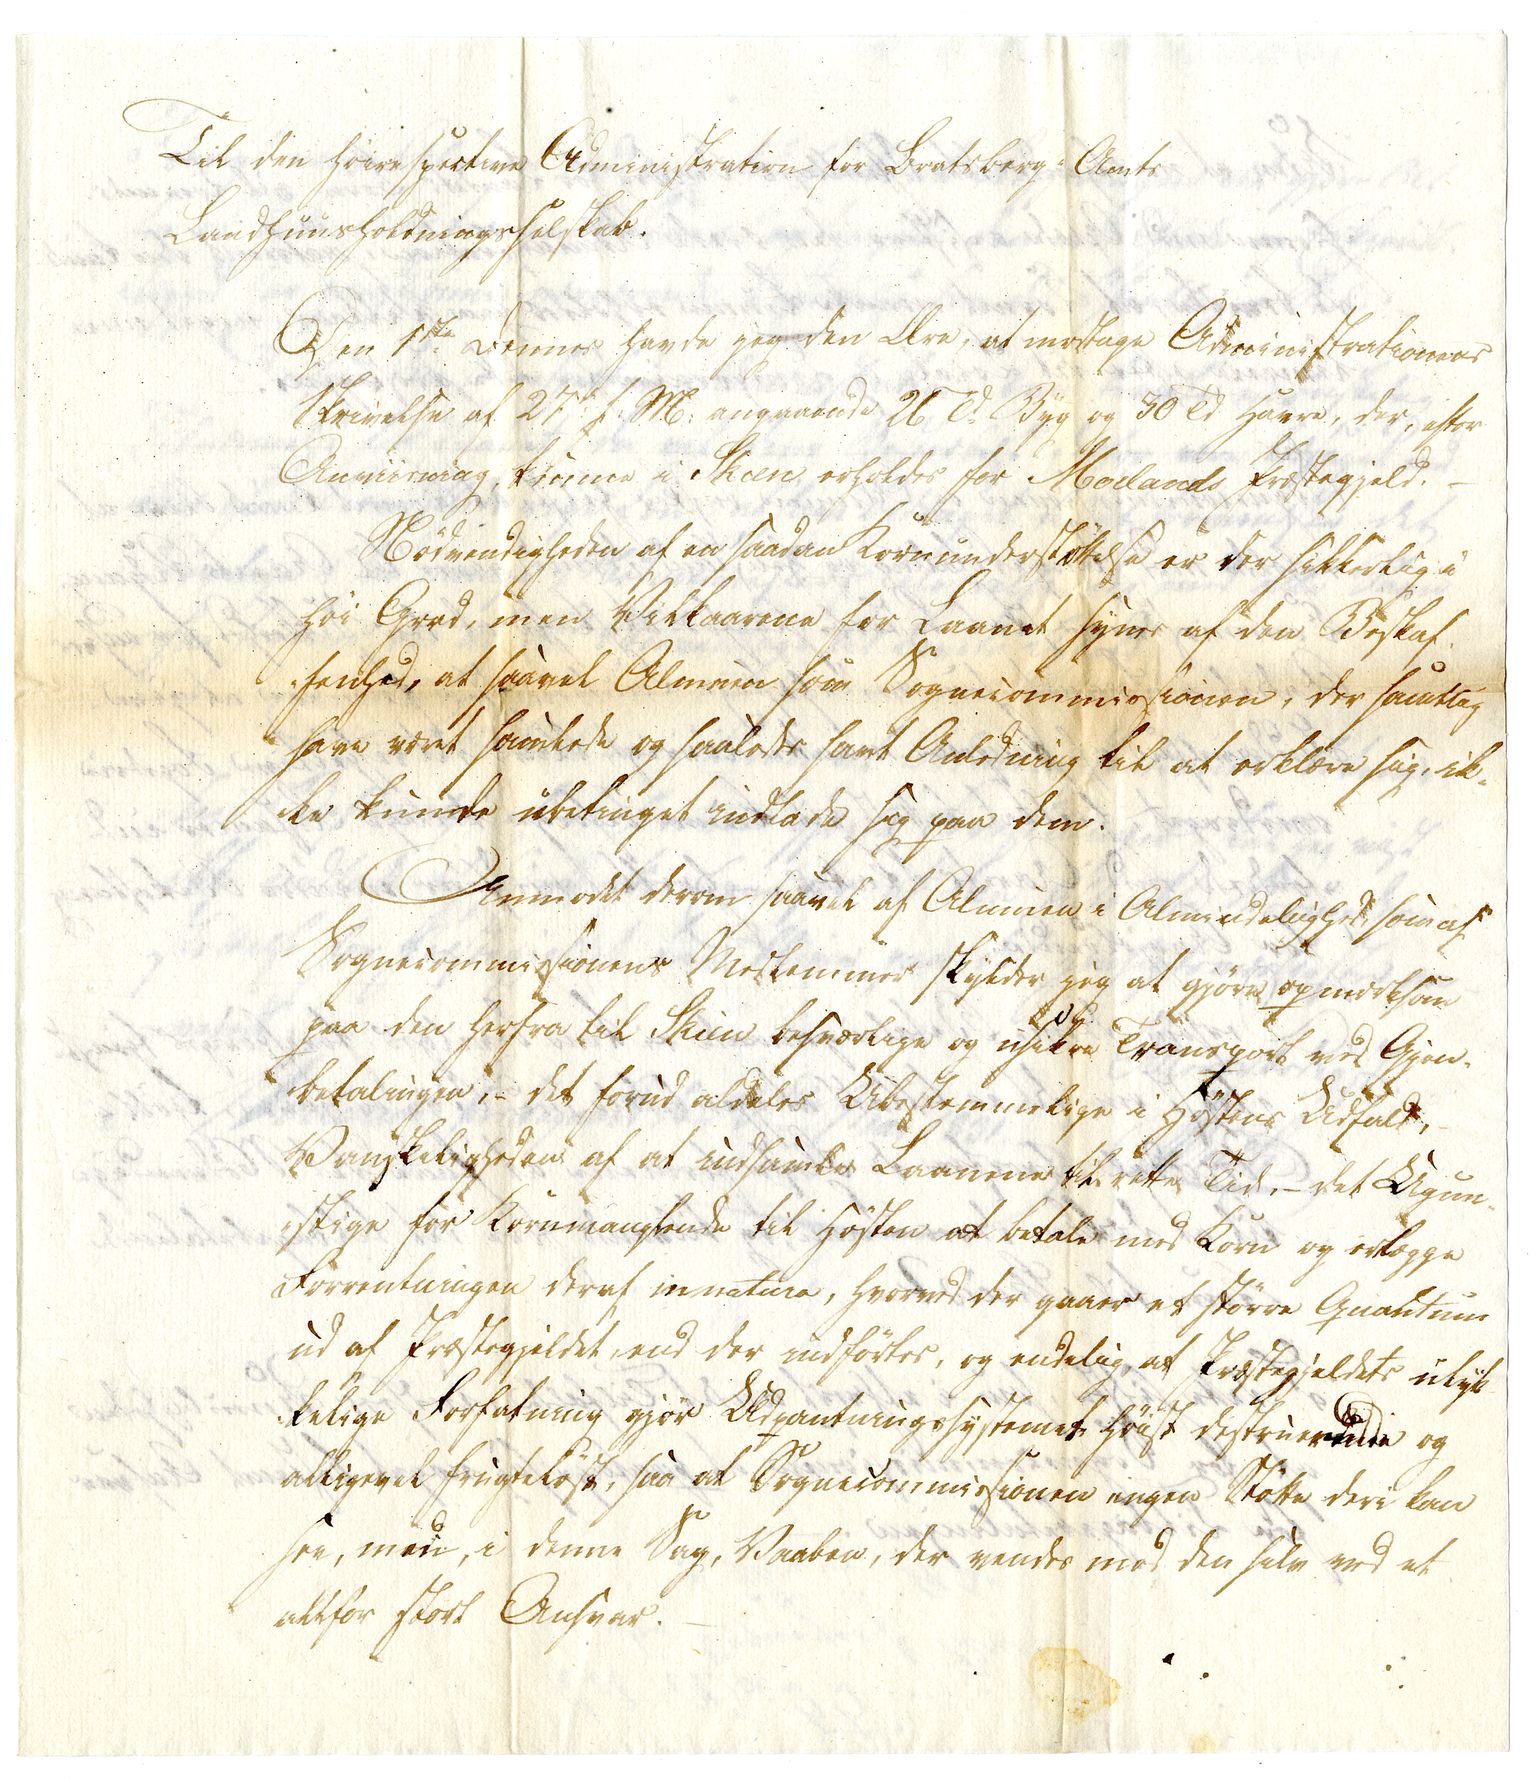 Til den höirespective Administration for Bratsberg Amts
Landhuusholdningsselskab.
Den 1ste Dennes havde jeg den Ære, at modtage Administrationens
Skrivelse af 27de f: M: angaaende 26 Td. Byg og 30 Td Havre, der, efter
Anviisning, kunne i Skien erholdes for Moelands Præstegjeld. —
Nödvendigheden af en saadan Kornunderstöttelse er der sikkerlig i
höi Grad, men Vilkaarene for Laanet synes af den Beskaf-
fenhed, at saavel Almuen som Sognecommissionen, der samtlig
have været samlede og saaledes havt Anledning til at erklære sig, ik-
ke kunde ubetinget indlade sig paa dem.
Anmodet derom saavel af Almuen i Almindelighed, som af
Sognecommissionens Medlemmer skylder jeg at gjöre opmærksom
paa den herfra til Skien besværlige og usikre Transport ved Gjen-
betalingen, - det forud aldeles Ubestemmelige i Höstens Udfald, -
Vanskeligheden af at indsamle Laanene til rette Tid, - det Ugun-
stige for Kornmanglende til Hösten at betale med Korn og erlægge
Forrentningen deraf in natura, hvorved der gaaer et större Quantum
ud af Præstegjeldet, end der indförtes, og endelig, at Præstegjeldets ulyk-
kelige Forfatning gjör Udpantningssystemet höist destruerende og
alligevel frugteslöst, saa at Sognecommissionen ingen Stötte deri kan
see, men, i denne Sag, Vaaben, der vendes mod den selv ved et
altfor stort Ansvar. —